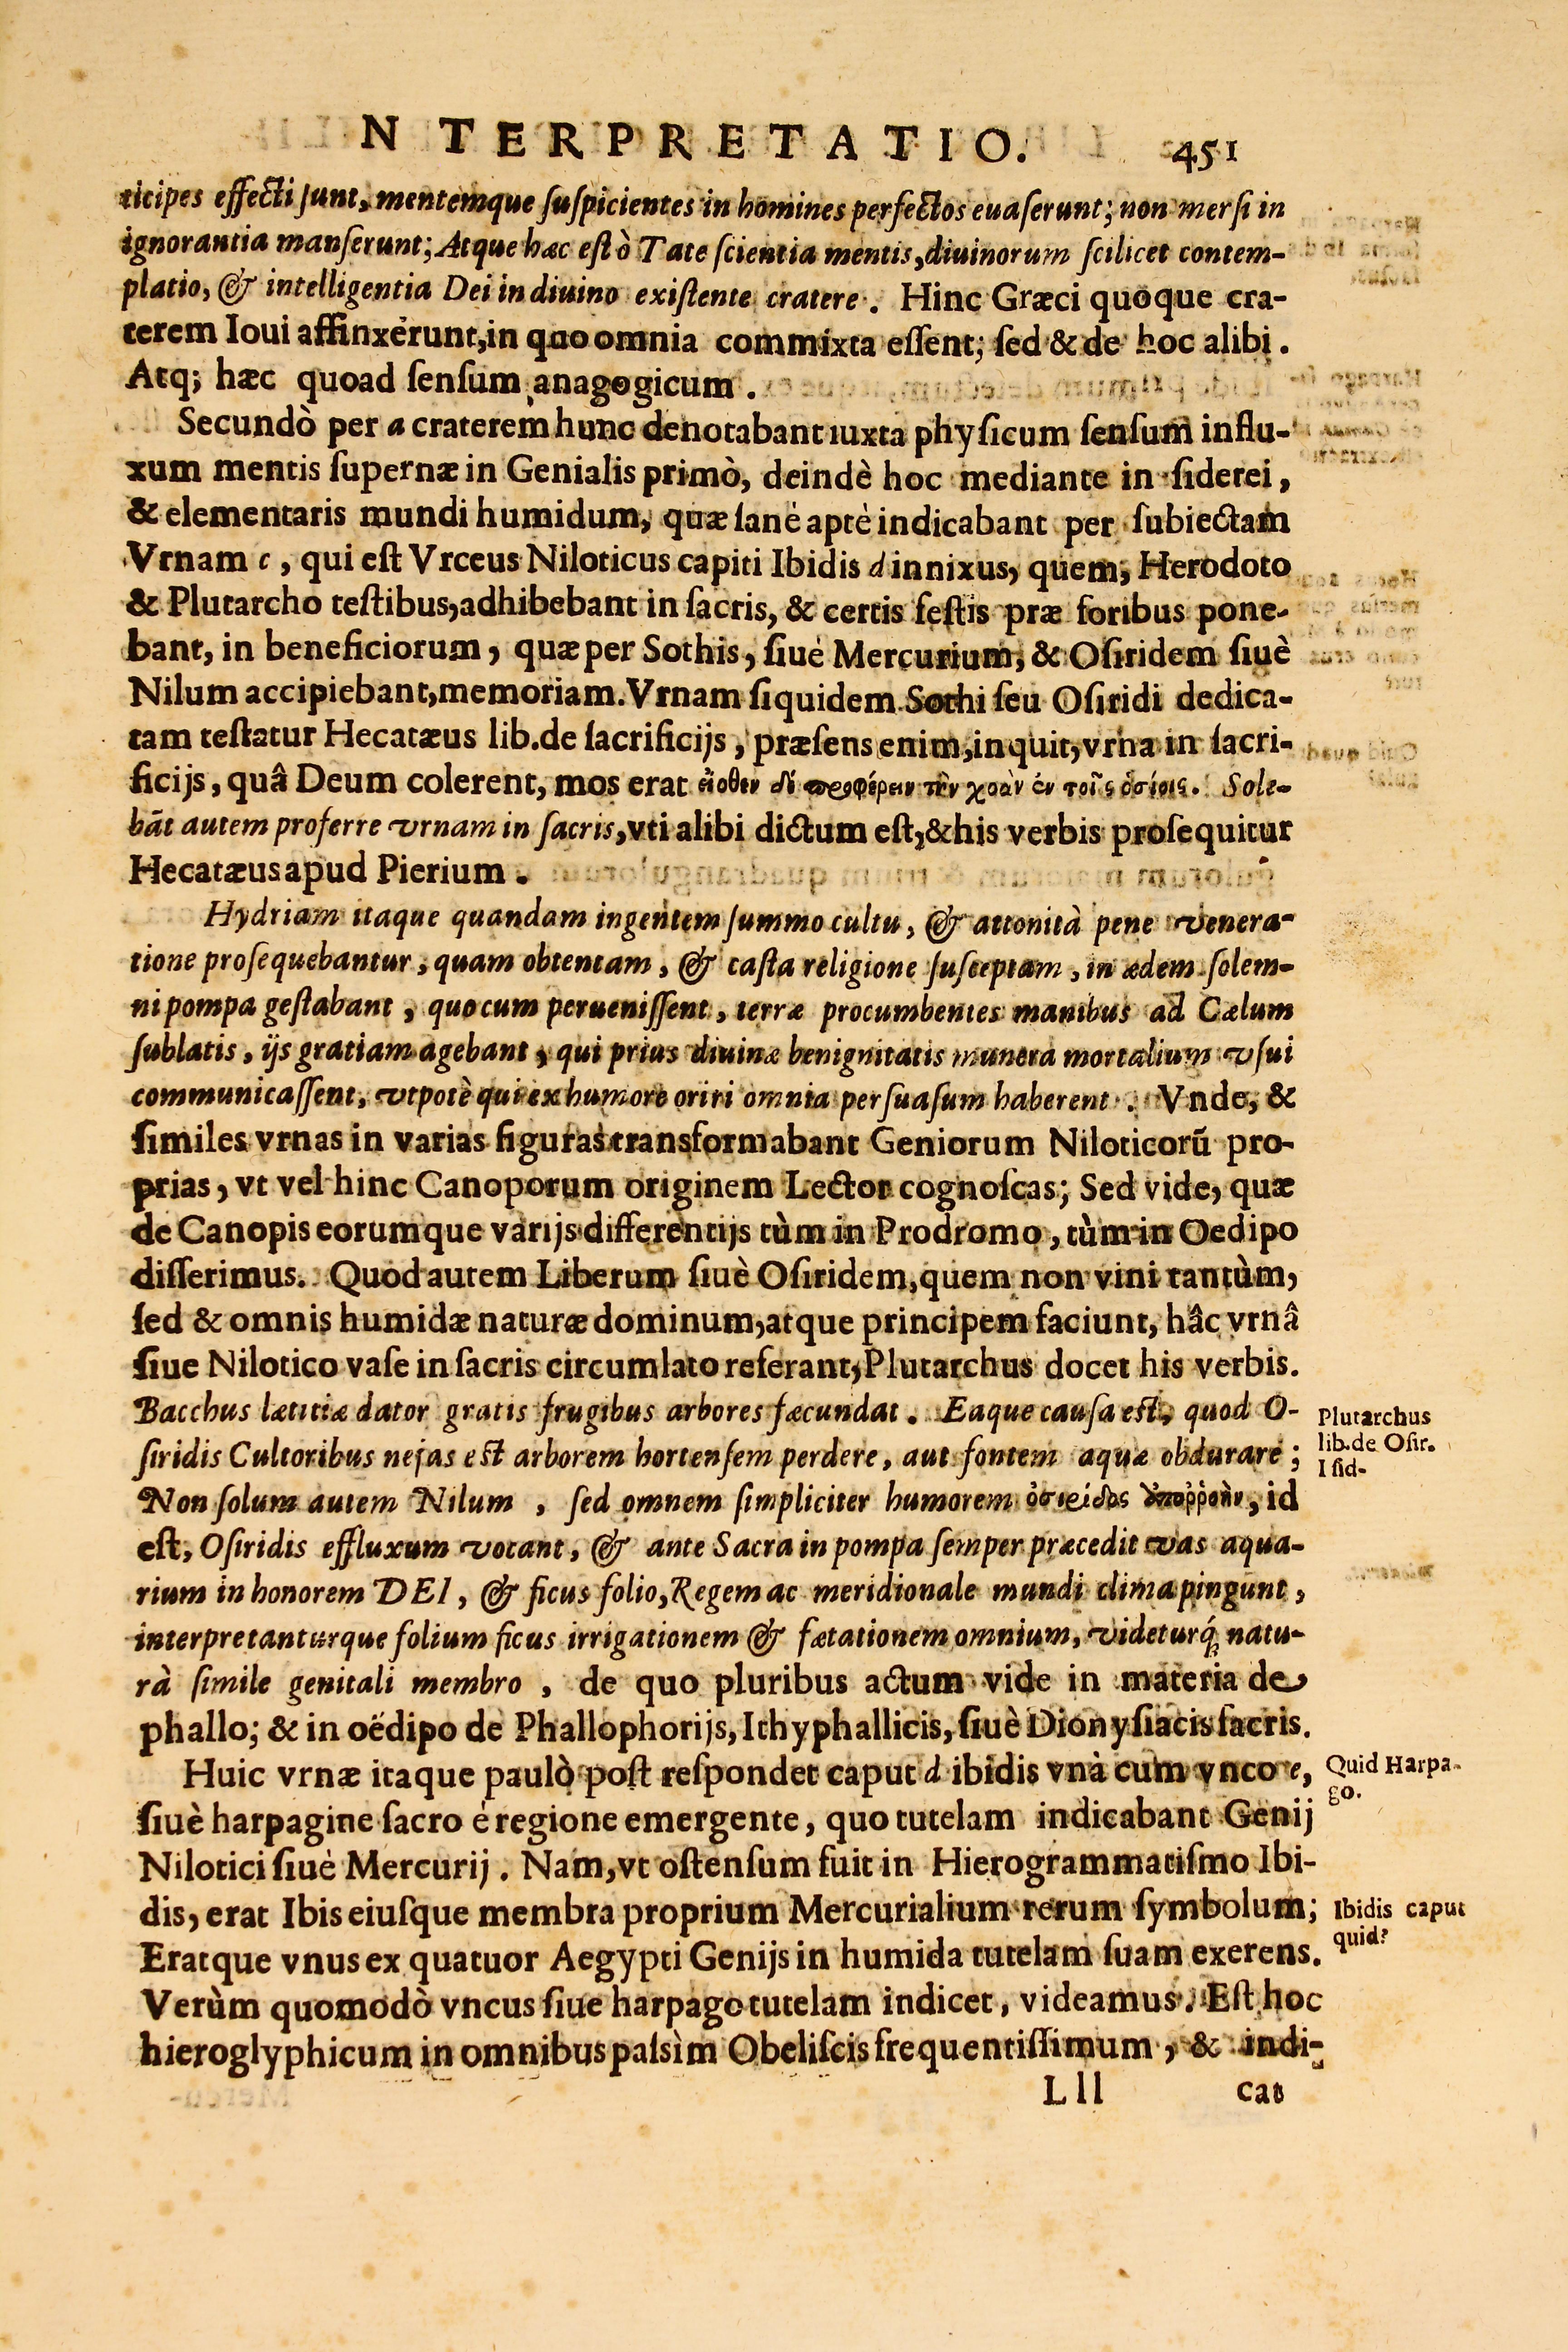 N TERPRETATIO. 451
ticipes effecti ſunt, mentemque ſuſpicientes in homines perfectos euaſerunt; non merſi in
ignorantia manſerunt; Atque hæc eſt ò Tate ſcientia mentis, diuinorum ſcilicet contem-
platio, & intelligentia Dei in diuino exiſtente cratere. Hinc Græci quoque cra-
terem Ioui affinxerunt, in quo omnia commixta eſſent; ſed & de hoc alibi.
Atq; hæc quoad ſenſum anagogicum.
Secundò per a craterem hunc denotabant iuxta phyſicum ſenſum influ-
xum mentis ſupernæ in Genialis primò, deindè hoc mediante in ſiderei,
& elementaris mundi humidum, quæ ſanè aptè indicabant per ſubiectam
Vrnam c, qui eſt Vrceus Niloticus capiti Ibidis d innixus, quem, Herodoto
& Plutarcho teſtibus, adhibebant in ſacris, & certis feſtis præ foribus pone-
bant, in beneficiorum, quæ per Sothis, ſiuè Mercurium, & Oſiridem ſiuè
Nilum accipiebant, memoriam. Vrnam ſiquidem Sothi ſeu Oſiridi dedica-
tam teſtatur Hecatæus lib. de ſacrificijs, præſens enim, inquit, vrna in ſacri-
ficijs, quâ Deum colerent, mos erat εἴοθεν δὲ προφέρειν τὴν χοὰν ἐν τοῖς ὁσίοις. Sole-
bãt autem proferre vrnam in ſacris, vti alibi dictum eſt, & his verbis proſequitur
Hecatæus apud Pierium.
Hydriam itaque quandam ingentem ſummo cultu, & attonità pene venera-
tione proſequebantur, quam obtentam, & caſta religione ſuſceptam, in ædem ſolem-
ni pompa geſtabant, quo cum perueniſſent, terræ procumbentes manibus ad Cælum
ſublatis, ijs gratiam agebant, qui prius diuinæ benignitatis munera mortalium vſui
communicaſſent, vtpotè qui ex humore oriri omnia perſuaſum haberent. Vnde, &
ſimiles vrnas in varias figuras transformabant Geniorum Niloticorũ pro-
prias, vt vel hinc Canoporum originem Lector cognoſcas; Sed vide, quæ
de Canopis eorumque varijs differentijs tùm in Prodromo, tùm in Oedipo
diſſerimus. Quod autem Liberum ſiuè Oſiridem, quem non vini tantùm,
ſed & omnis humidæ naturæ dominum, atque principem faciunt, hâc vrnâ
ſiue Nilotico vaſe in ſacris circumlato referant, Plutarchus docet his verbis.
Bacchus lætitiæ dator gratis frugibus arbores fæcundat. Eaque cauſa eſt, quod O-
ſiridis Cultoribus nefas eſt arborem hortenſem perdere, aut fontem aquæ obdurare;
Plutarchus
lib. de Oſir.
Iſid-
Non ſolum autem Nilum, ſed omnem ſimpliciter humorem ὀσιειδος ἀποῤῥοὴν, id
eſt, Oſiridis effluxum vocant, & ante Sacra in pompa ſemper præcedit vas aqua-
rium in honorem DEI, & ficus folio, Regem ac meridionale mundi clima pingunt,
interpretanturque folium ficus irrigationem & fætationem omnium, videturq́; natu-
rà ſimile genitali membro, de quo pluribus actum vide in materia de
phallo; & in oëdipo de Phallophorijs, Ithyphallicis, ſiuè Dionyſiacis ſacris.
Huic vrnæ itaque paulò poſt reſpondet caput d ibidis vnà cum vnco e,
Quid Harpa-
go.
ſiuè harpagine ſacro è regione emergente, quo tutelam indicabant Genij
Nilotici ſiuè Mercurij. Nam, vt oſtenſum fuit in Hierogrammatiſmo Ibi-
dis, erat Ibis eiuſque membra proprium Mercurialium rerum ſymbolum;
Ibidis caput
quid?
Eratque vnus ex quatuor Aegypti Genijs in humida tutelam ſuam exerens.
Verùm quomodò vncus ſiue harpago tutelam indicet, videamus. Eſt hoc
hieroglyphicum in omnibus paſsìm Obeliſcis frequentiſſimum, & indi-
Lll cat